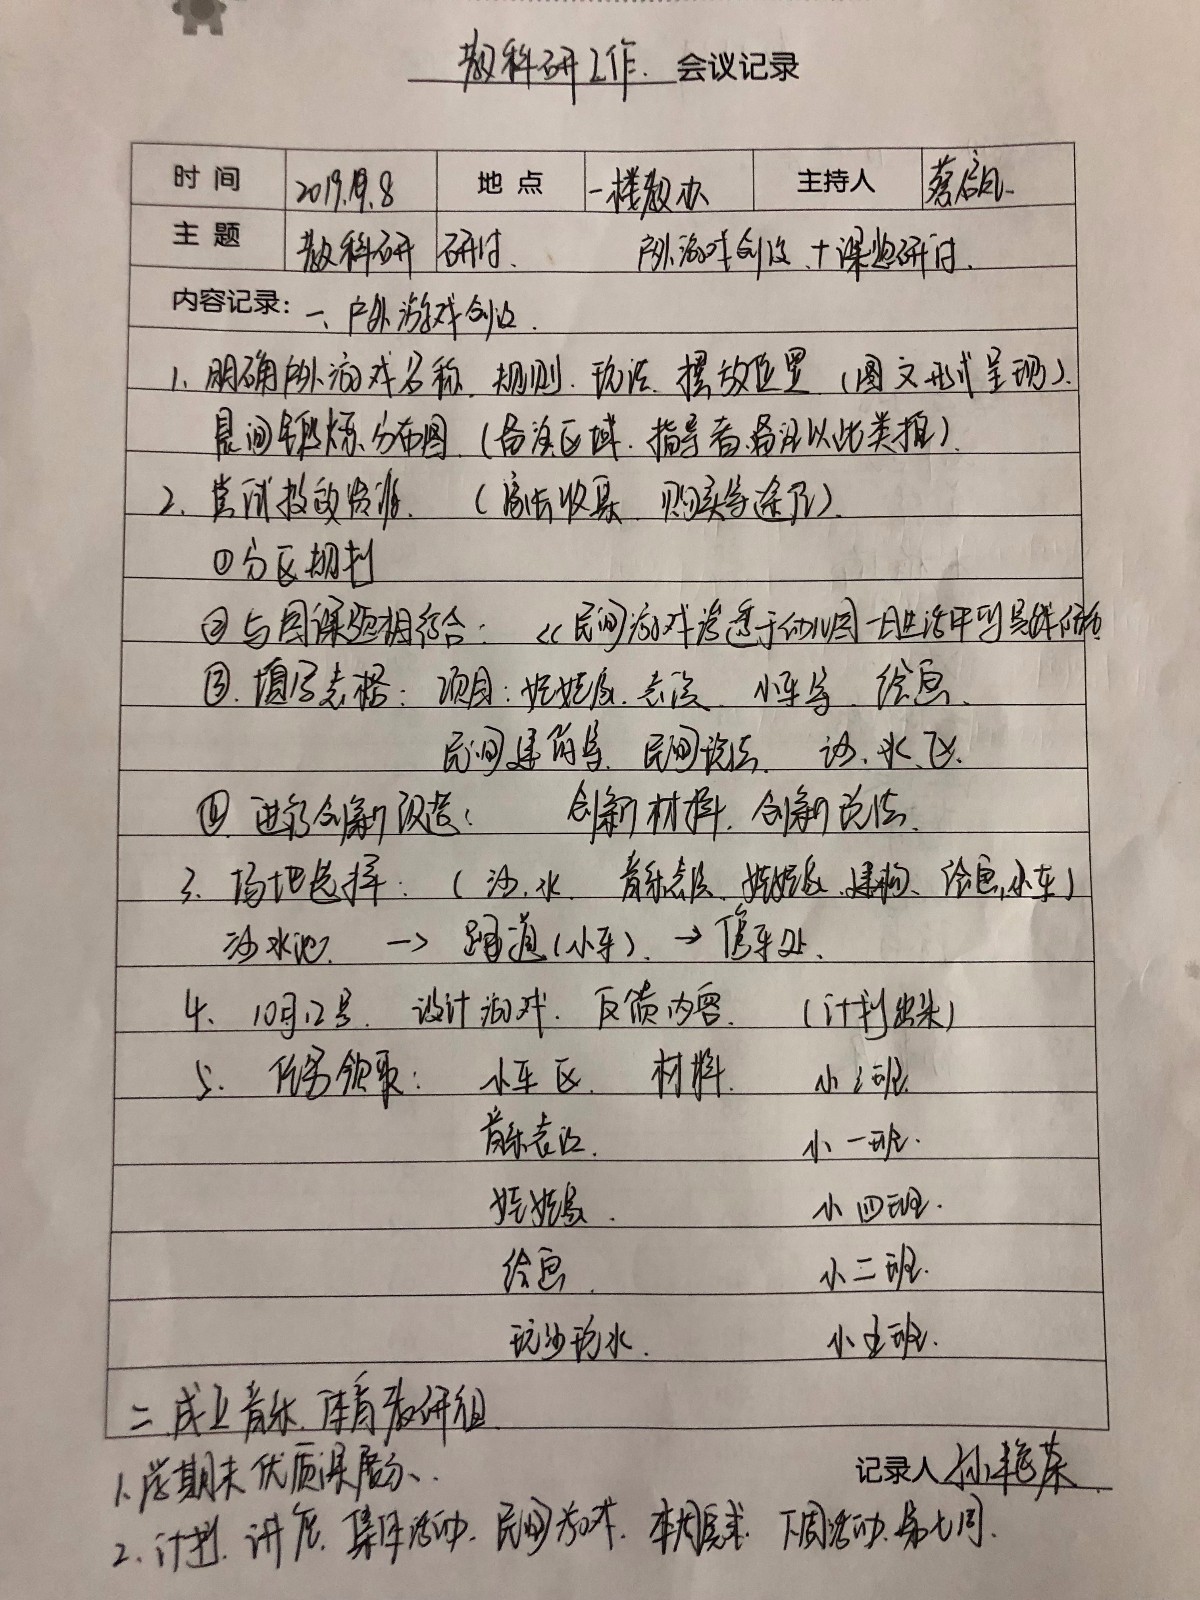 教科研工作 会议记录
时间 2019.10.8 地点 一楼教办 主持人
主题 教科研 研讨 户外游戏创设 + 课题研讨
内容记录: 一、户外游戏创设
1、明确户外游戏名称、规则、玩法、摆放位置 (图文形式呈现)
晨间锻炼分布图 (备注区域、指导者、备注以此类推)
2、尝试投放资源 (家长收集、购买等途径)
①分区规划
②与园课题相结合: 《民间游戏渗透于幼儿园一日生活中
③填写表格: 项目: 娃娃家、表演、小车等、绘画、
民间建构等、民间玩法、沙、水区
④进行创新改造: 创新材料、创新玩法
3、场地选择: (沙、水 音乐表演、娃娃家、建构、绘画、小车)
沙水池 → 跑道(小车) → 停车处
4、10月12号 设计游戏、反馈内容 (计划出来)
5、任务领取: 小车区 材料 小三班
音乐表演 小一班
娃娃家 小四班
绘画 小二班
玩沙玩水 小五班
二、成立音乐、体育教研组
1、学期末优质课展示、
记录人 孙艳荣
2、计划、讲座、集体活动、民间游戏、下周活动、第七周